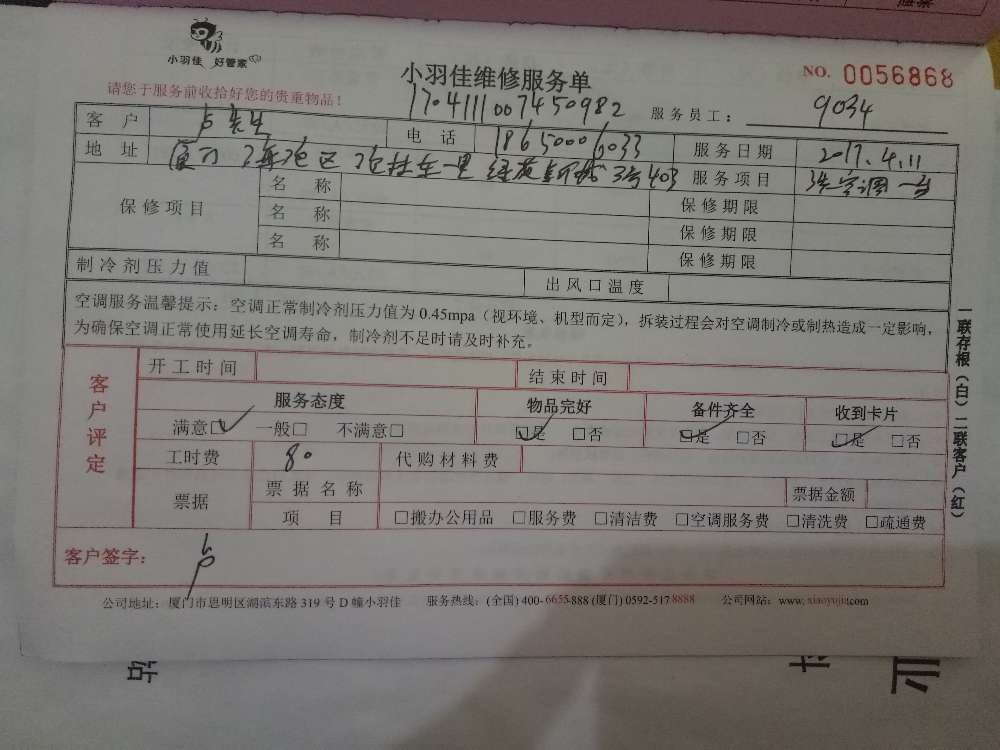 小羽佳 好管家
小羽佳维修服务单
NO. 0056868
请您于服务前收拾好您的贵重物品！
1704111007450982
服务员工： 9034
客 户 卢先生 电 话 18650006033 服务日期 2017.4.11
地 址 厦门 3号403 服务项目 洗空调一台
保修项目 名 称 保修期限
名 称 保修期限
名 称 保修期限
制冷剂压力值 出风口温度
空调服务温馨提示：空调正常制冷剂压力值为 0.45mpa（视环境、机型而定），拆装过程会对空调制冷或制热造成一定影响，
为确保空调正常使用延长空调寿命，制冷剂不足时请及时补充。
客户评定
开工时间 结束时间
服务态度 物品完好 备件齐全 收到卡片
满意□✓ 一般□ 不满意□ ☑是 □否 ☑是 □否 ☑是 □否
工时费 80 代购材料费
票据 票据名称 票据金额
项 目 □搬办公用品 □服务费 □清洁费 □空调服务费 □清洗费 □疏通费
客户签字： 卢
公司地址：厦门市思明区湖滨东路 319 号 D 幢小羽佳 服务热线：(全国) 400-6655-888 (厦门) 0592-5178888 公司网站：www.xiaoyujia.com
一联存根（白）二联客户（红）